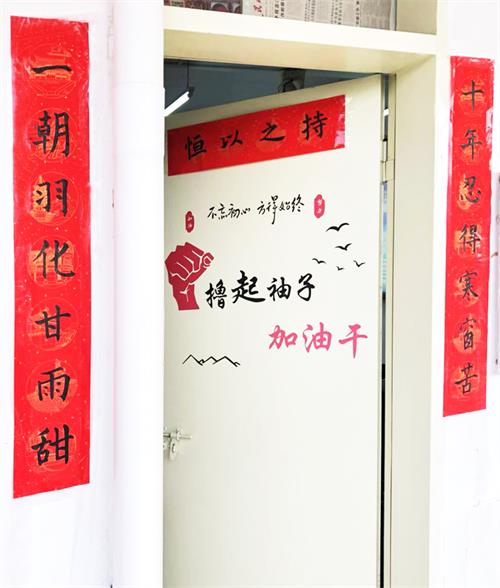 十年忍得寒窗苦
一朝羽化甘雨甜
持之以恒
不忘初心 方得始终
撸起袖子
加油干